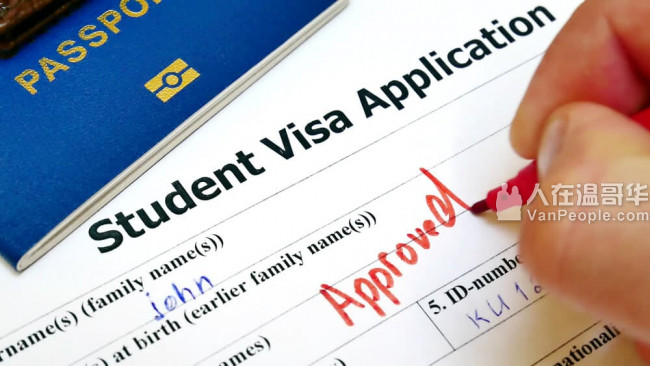 PASSPO
Student Visa Application
rname(s) (family name(s))
john
) at birth (earlier family name(s))
Approved
5. ID-numbe
KU 1
ames)
nationali
人在温哥华
VanPeople.com